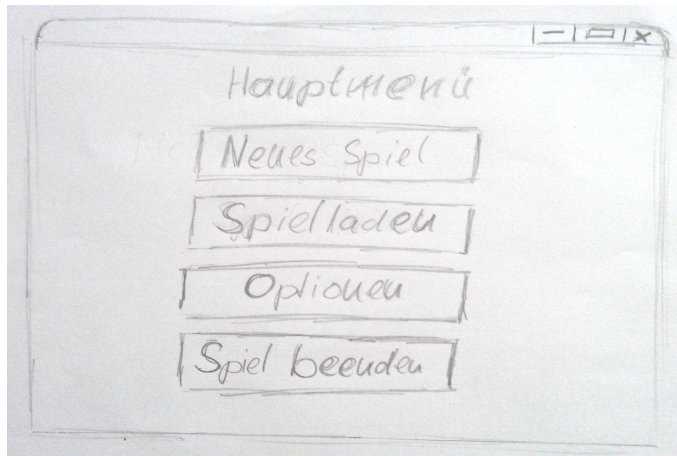 Hauptmenü
Neues Spiel
Spielladen
Optionen
Spiel beenden